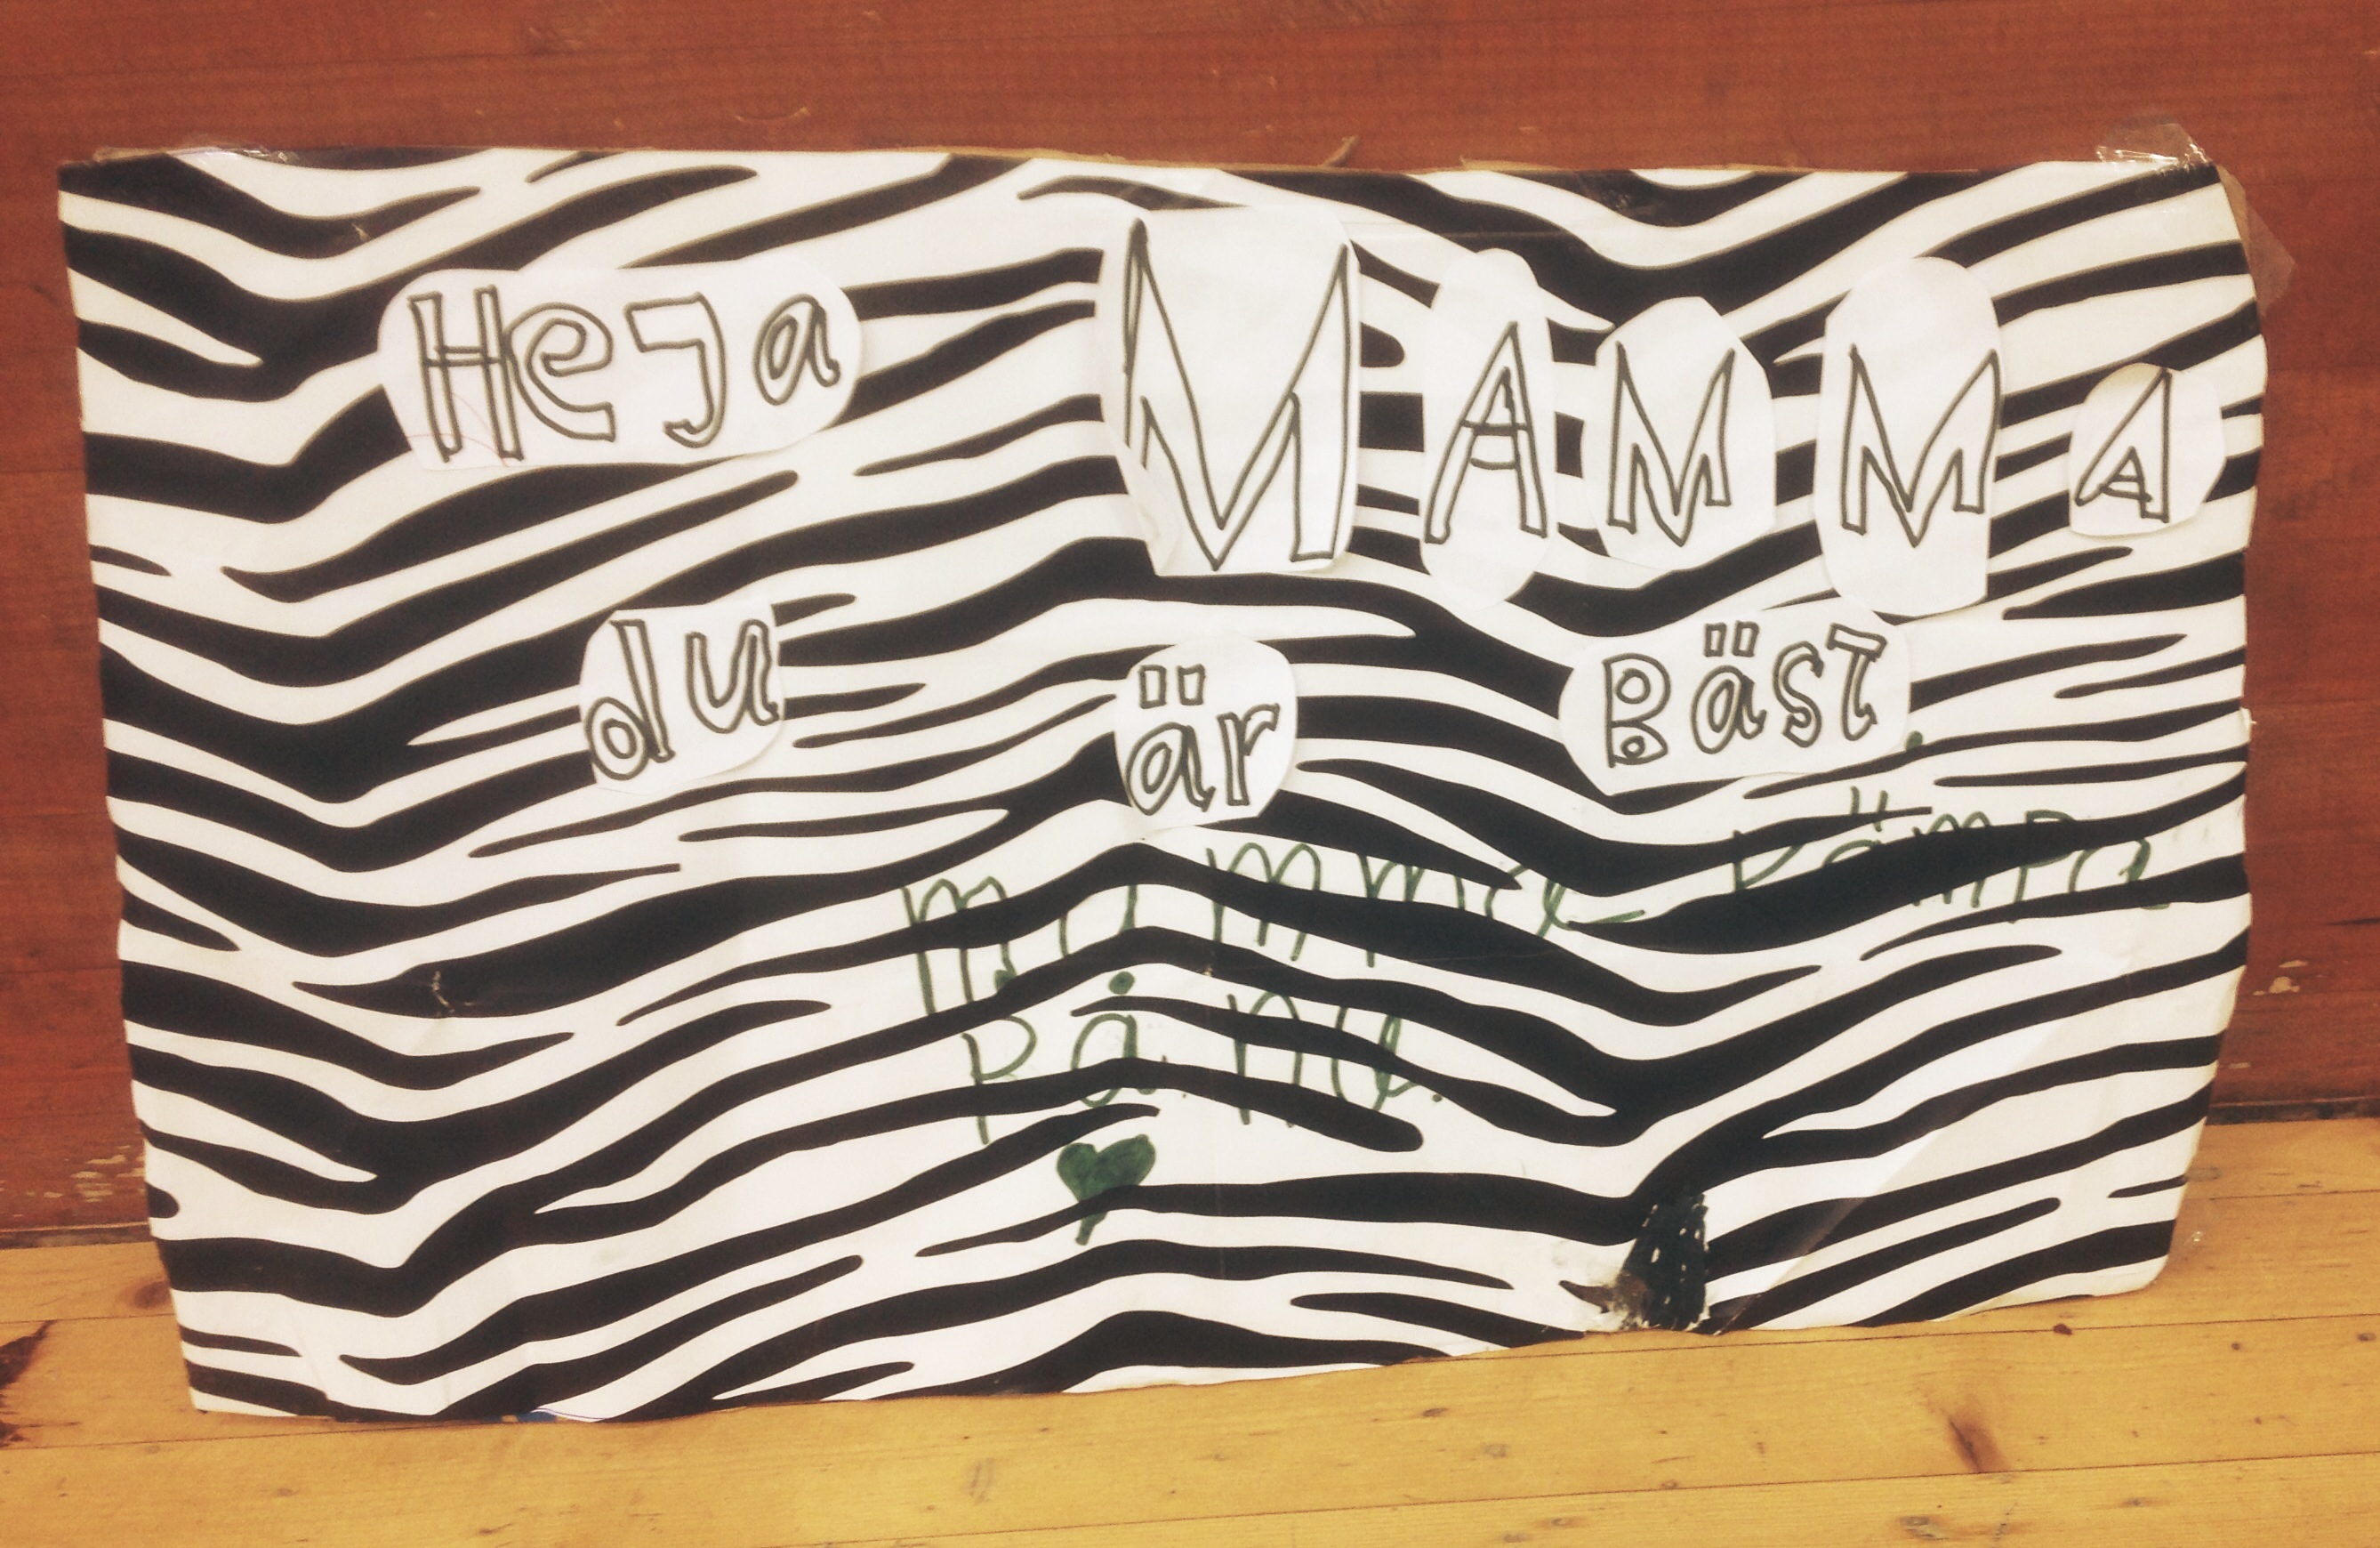 Heja MAMMA
du är Bäst
mamma kämpa
på nu.